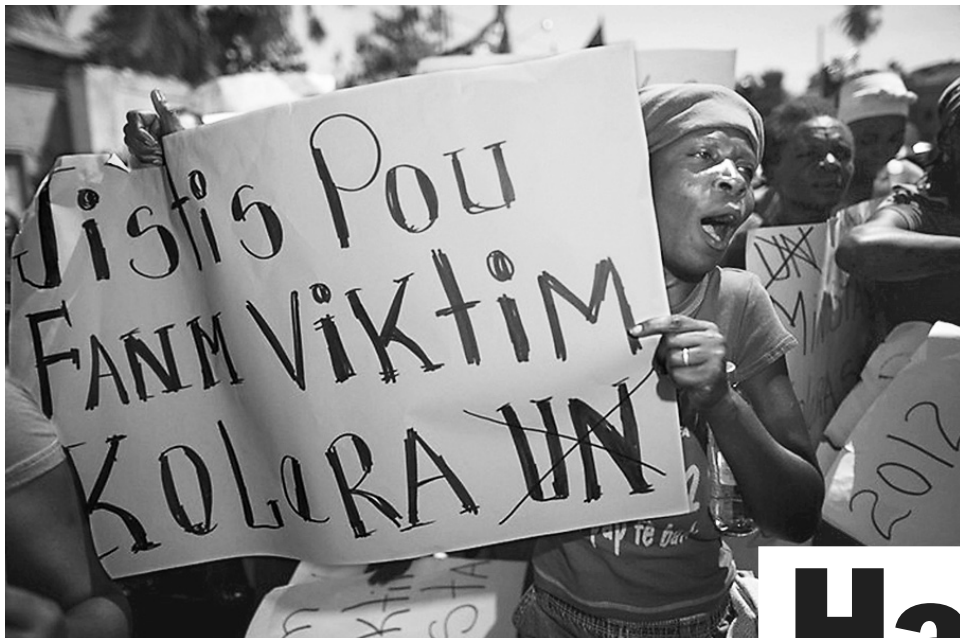 Jistis POU
FANM VIKTIM
KOLERA UN
UN
2012
pap fè
Ha